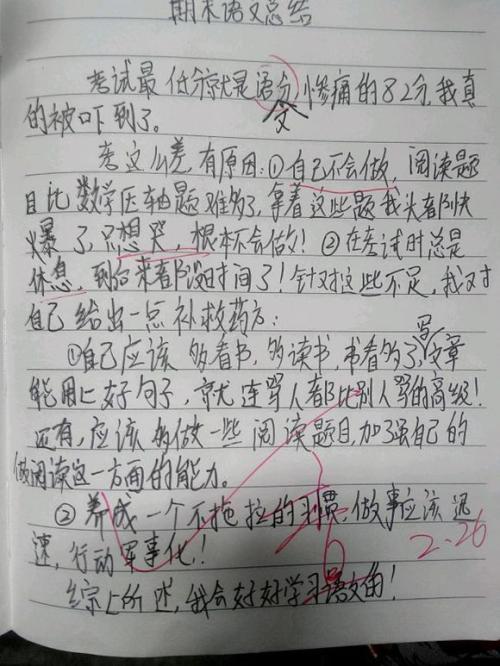 期末语文总结
考试最低分就是语分,惨痛的82分,我真
文
的被吓到了。
考这么差,有原因:①自己不会做,阅读题
目比数学压轴题难多了,拿着这些题我头都快
爆了,只想哭,根本不会做!②在考试时总是
休息,到后来都没时间了!针对这些不足,我对
自己给出一点补救药方:
写
①自己应该多看书,多读书,书看多了,文章
能用上好句子,就连骂人都比别人骂的高级!
还有,应该多做一些阅读题目,加强自己的
做阅读这一方面的能力。
②养成一个不拖拉的习惯,做事应该迅
速,行动军事化!
2.26
综上所述,我会好好学习语文的!